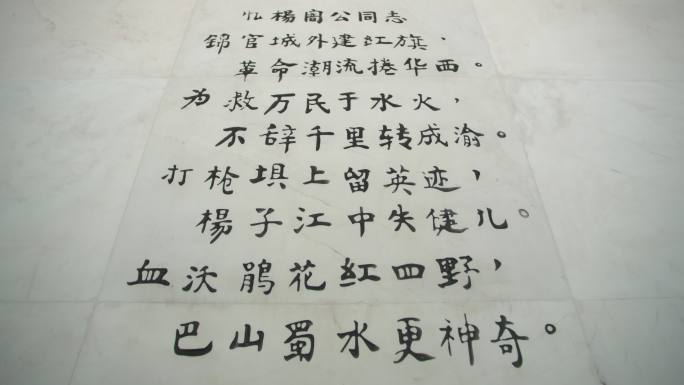 忆楊闇公同志
錦官城外建红旗，
革命潮流捲华西。
为救万民于水火，
不辞千里转成渝。
打枪埧上留英迹，
楊子江中失健儿。
血沃鹃花红四野，
巴山蜀水更神奇。